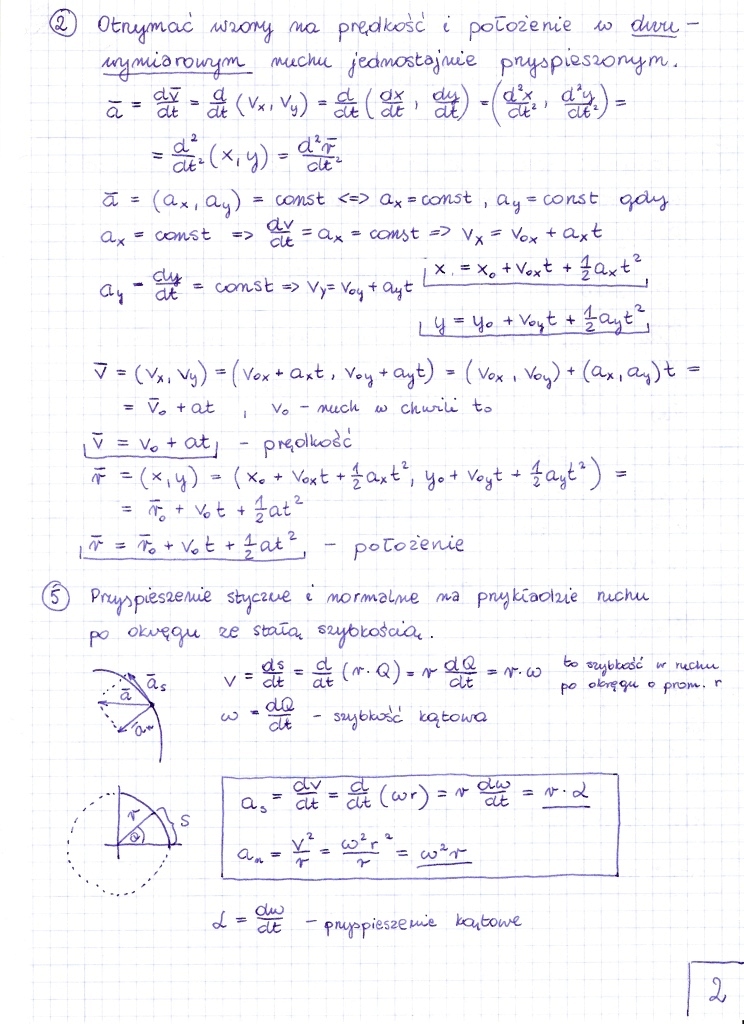 ② Otrzymać wzory na prędkość i położenie w dwu-
wymiarowym ruchu jednostajnie przyspieszonym.
ā = dv̄/dt = d/dt (Vx, Vy) = d/dt (dx/dt, dy/dt) = (d²x/dt², d²y/dt²) =
= d²/dt² (x, y) = d²r̄/dt²
ā = (ax, ay) = const <=> ax = const, ay = const gdy
ax = const => dv/dt = ax = const => Vx = Vox + axt
x = xo + Voxt + 1/2 axt²
ay = dy/dt = const => Vy = Voy + ayt
y = yo + Voyt + 1/2 ayt²
v̄ = (Vx, Vy) = (Vox + axt, Voy + ayt) = (Vox, Voy) + (ax, ay)t =
= v̄o + at , Vo - ruch w chwili to
v̄ = vo + at - prędkość
r̄ = (x, y) = (xo + Voxt + 1/2 axt², yo + Voyt + 1/2 ayt²) =
= r̄o + Vot + 1/2 at²
r̄ = r̄o + Vot + 1/2 at² - położenie
⑤ Przyspieszenie styczne i normalne na przykładzie ruchu
po okręgu ze stałą szybkością.
ās
ā
ān
V = ds/dt = d/dt (r·Q) = r dQ/dt = r·ω to szybkość w ruchu
po okręgu o prom. r
ω = dQ/dt - szybkość kątowa
r
S
Q
as = dv/dt = d/dt (ωr) = r dω/dt = r·α
an = V²/r = ω²r²/r = ω²r
α = dω/dt - przyspieszenie kątowe
2